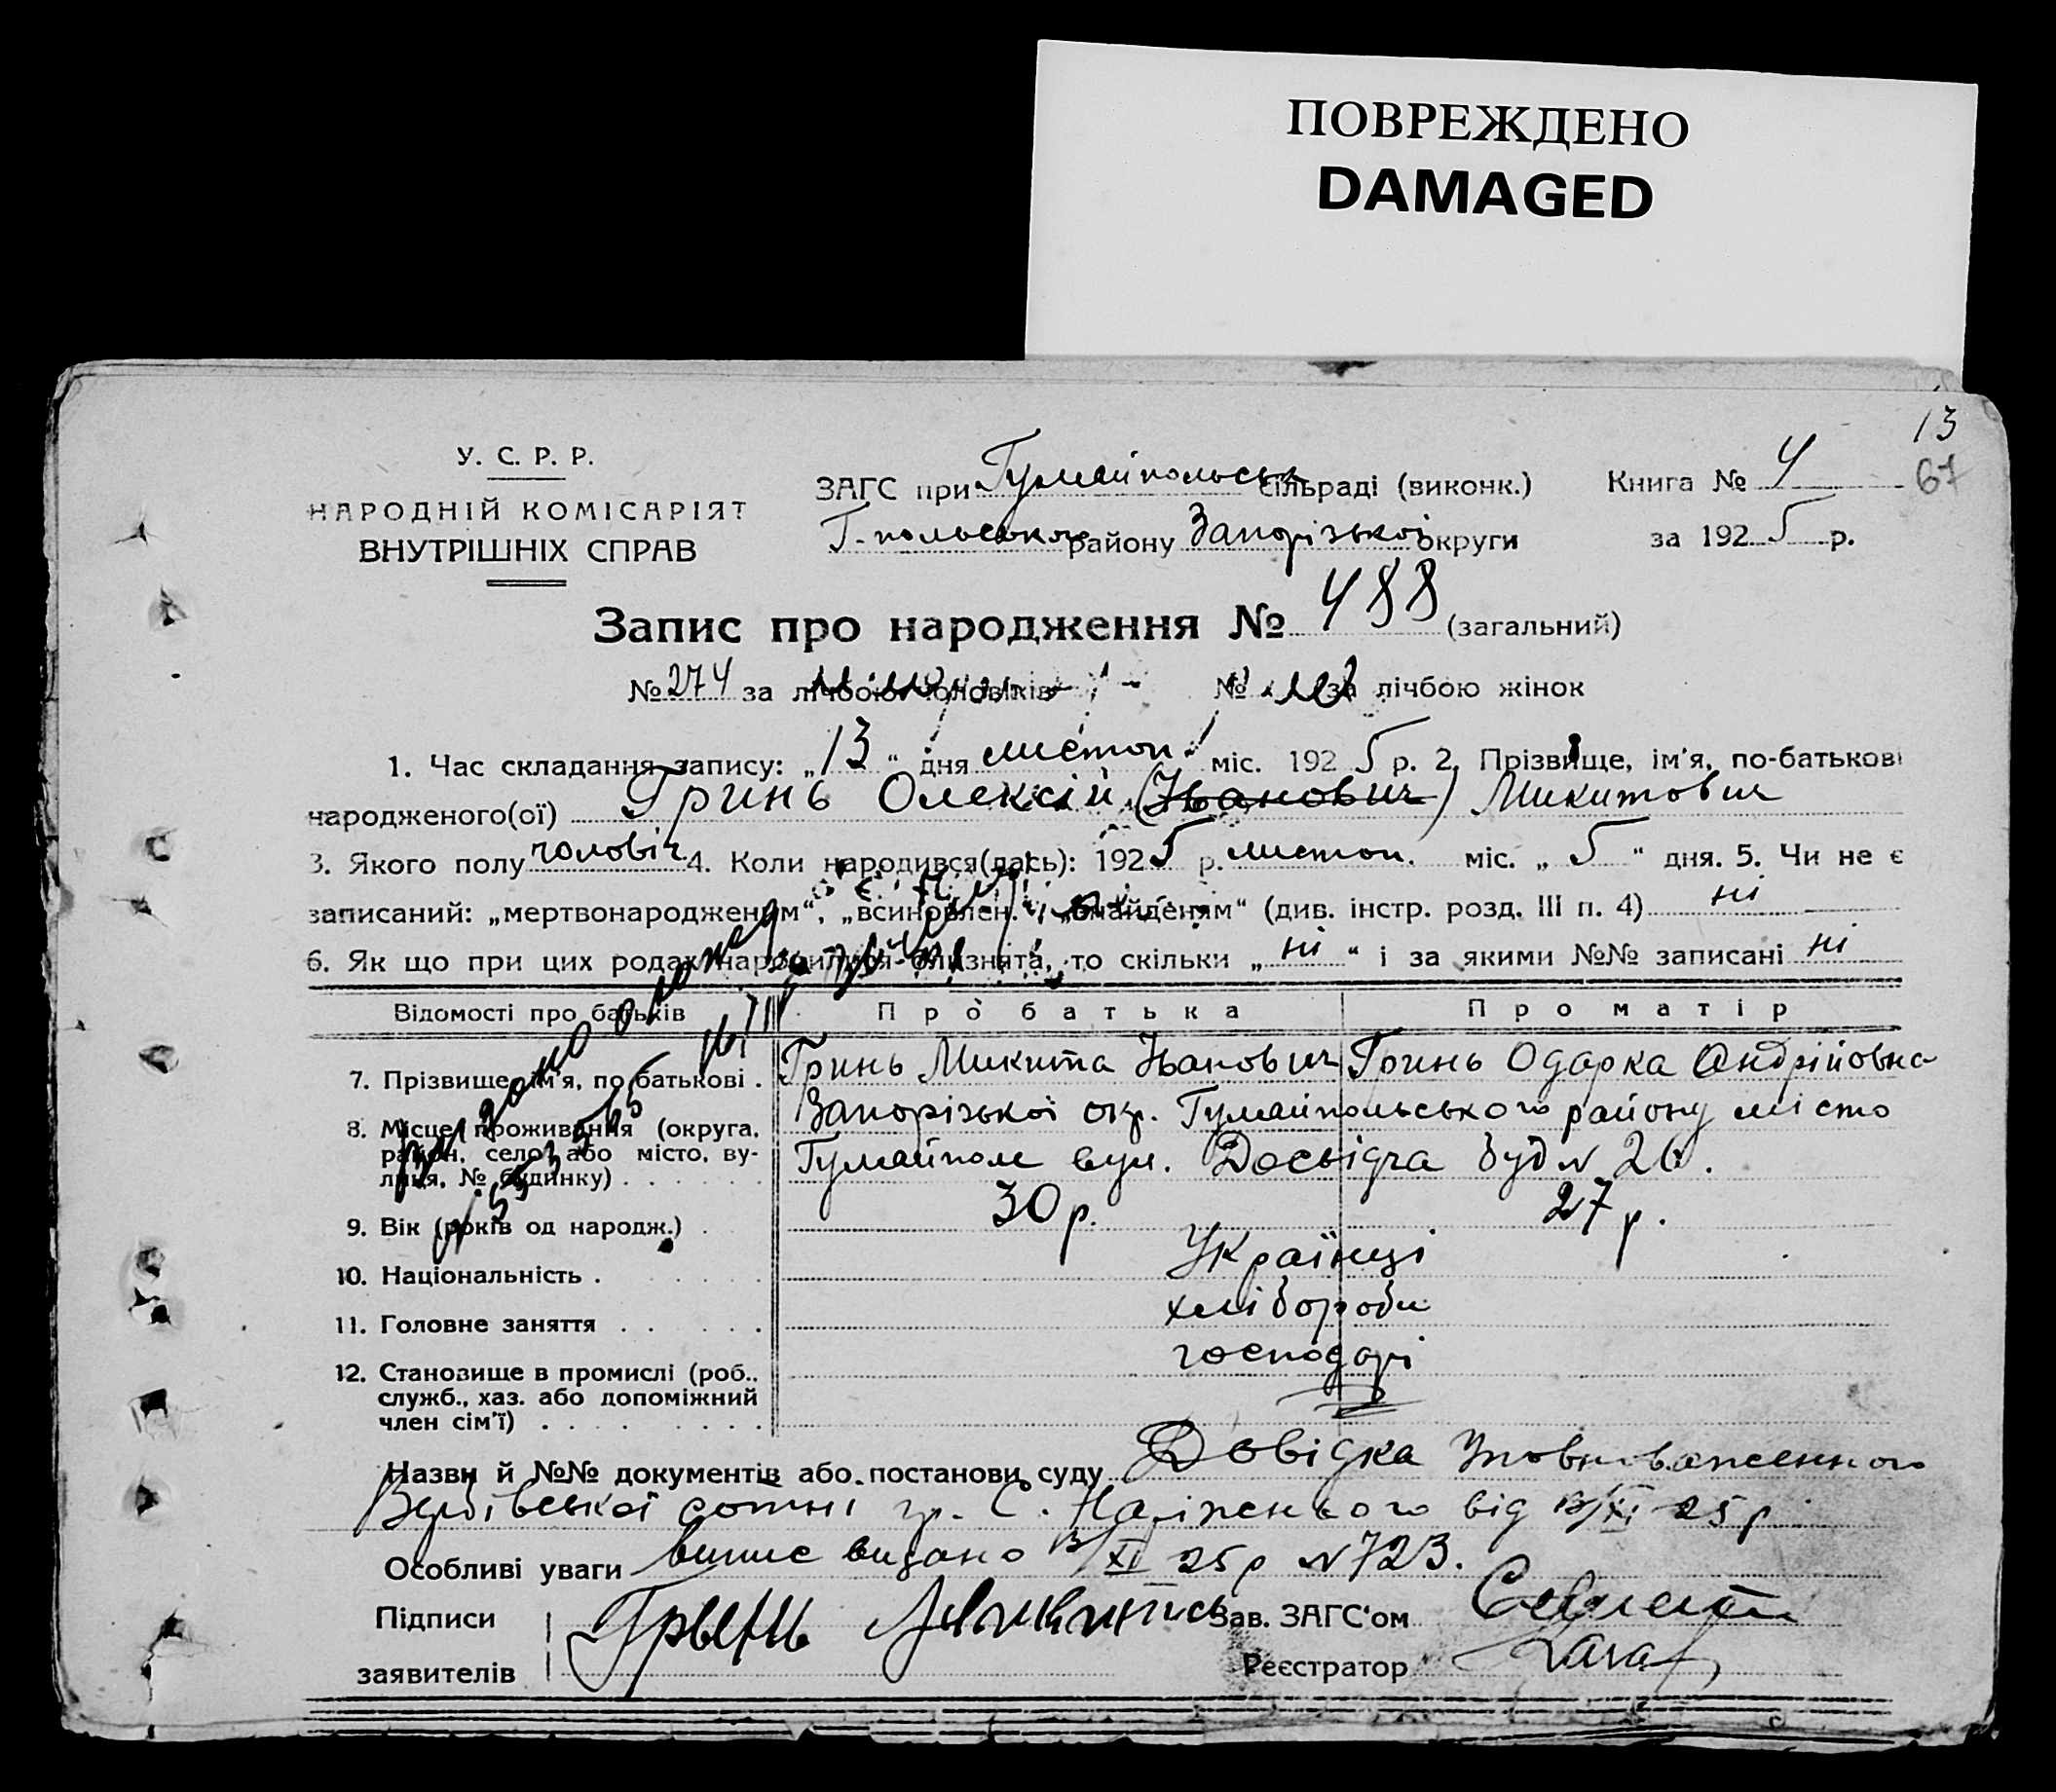 ПОВРЕЖДЕНО
DAMAGED
13
67
У. С. Р. Р.
НАРОДНІЙ КОМІСАРІЯТ
ВНУТРІШНІХ СПРАВ
ЗАГС при Гуляйпольськ сільраді (виконк.)
Г.-польського району Запорізької округи
Книга № 4
за 1925 р.
Запис про народження № 488 (загальний)
№ 274 за лічбою чоловіків № за лічбою жінок
1. Час складання запису: „13“ дня листоп. міс. 1925 р. 2. Прізвище, ім'я, по-батькові
народженого(ої) Гринь Олексій (Іванович) Микитович
3. Якого полу чоловіч. 4. Коли народився(лась): 1925 р. листоп. міс. „5“ дня. 5. Чи не є
записаний: „мертвонародженям“, „всиновлен.“ і „знайденям“ (див. інстр. розд. III п. 4) ні
6. Як що при цих родах народилися близнята, то скільки „ні“ і за якими №№ записані ні
Відомості про батьків
Про батька
Про матір
7. Прізвище, ім'я, по батькові .
Гринь Микита Іванович
Гринь Одарка Андрійовна
8. Місце проживання (округа, район, село або місто, вулиця, № будинку)
Запорізької окр. Гуляйпольського району місто
Гуляйполе вул. Досвідча буд № 26.
9. Вік (років од народж.) .
30 р.
27 р.
10. Національність .
Українці
11. Головне заняття
хлібороби
12. Становище в промислі (роб., служб., хаз. або допоміжний член сім'ї)
господарі
Назви й №№ документів або постанови суду Довідка Уповноваженного
Вербівської сотні гр. С. від 13/XI 25 р.
Особливі уваги випис видано 13/XI 25 р № 723.
Підписи
заявителів
Грынь
Зав. ЗАГС'ом
Реєстратор